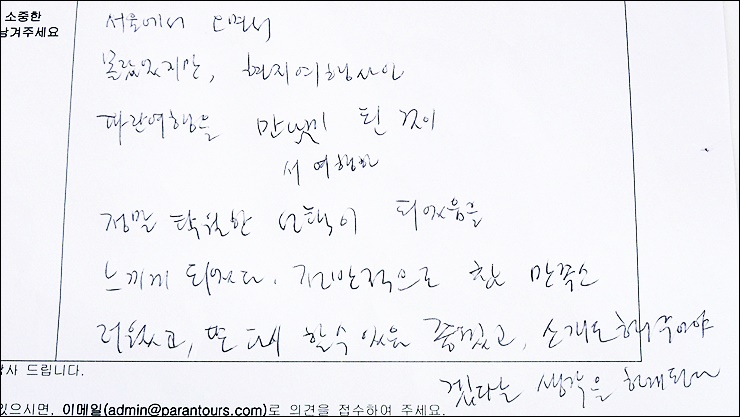 소중한
남겨주세요
서울에서 오면서
몰랐었지만, 현지여행사인
파란여행을 만나게 된 것이
서 여행한
정말 탁월한 선택이 되었음을
느끼게 되었다. 전반적으로 참 만족스
러웠고, 또 다시 할수 있음 좋겠고, 소개도 해주어야
겠다는 생각을 하게된다
감사 드립니다.
있으시면, 이메일(admin@parantours.com)로 의견을 접수하여 주세요.